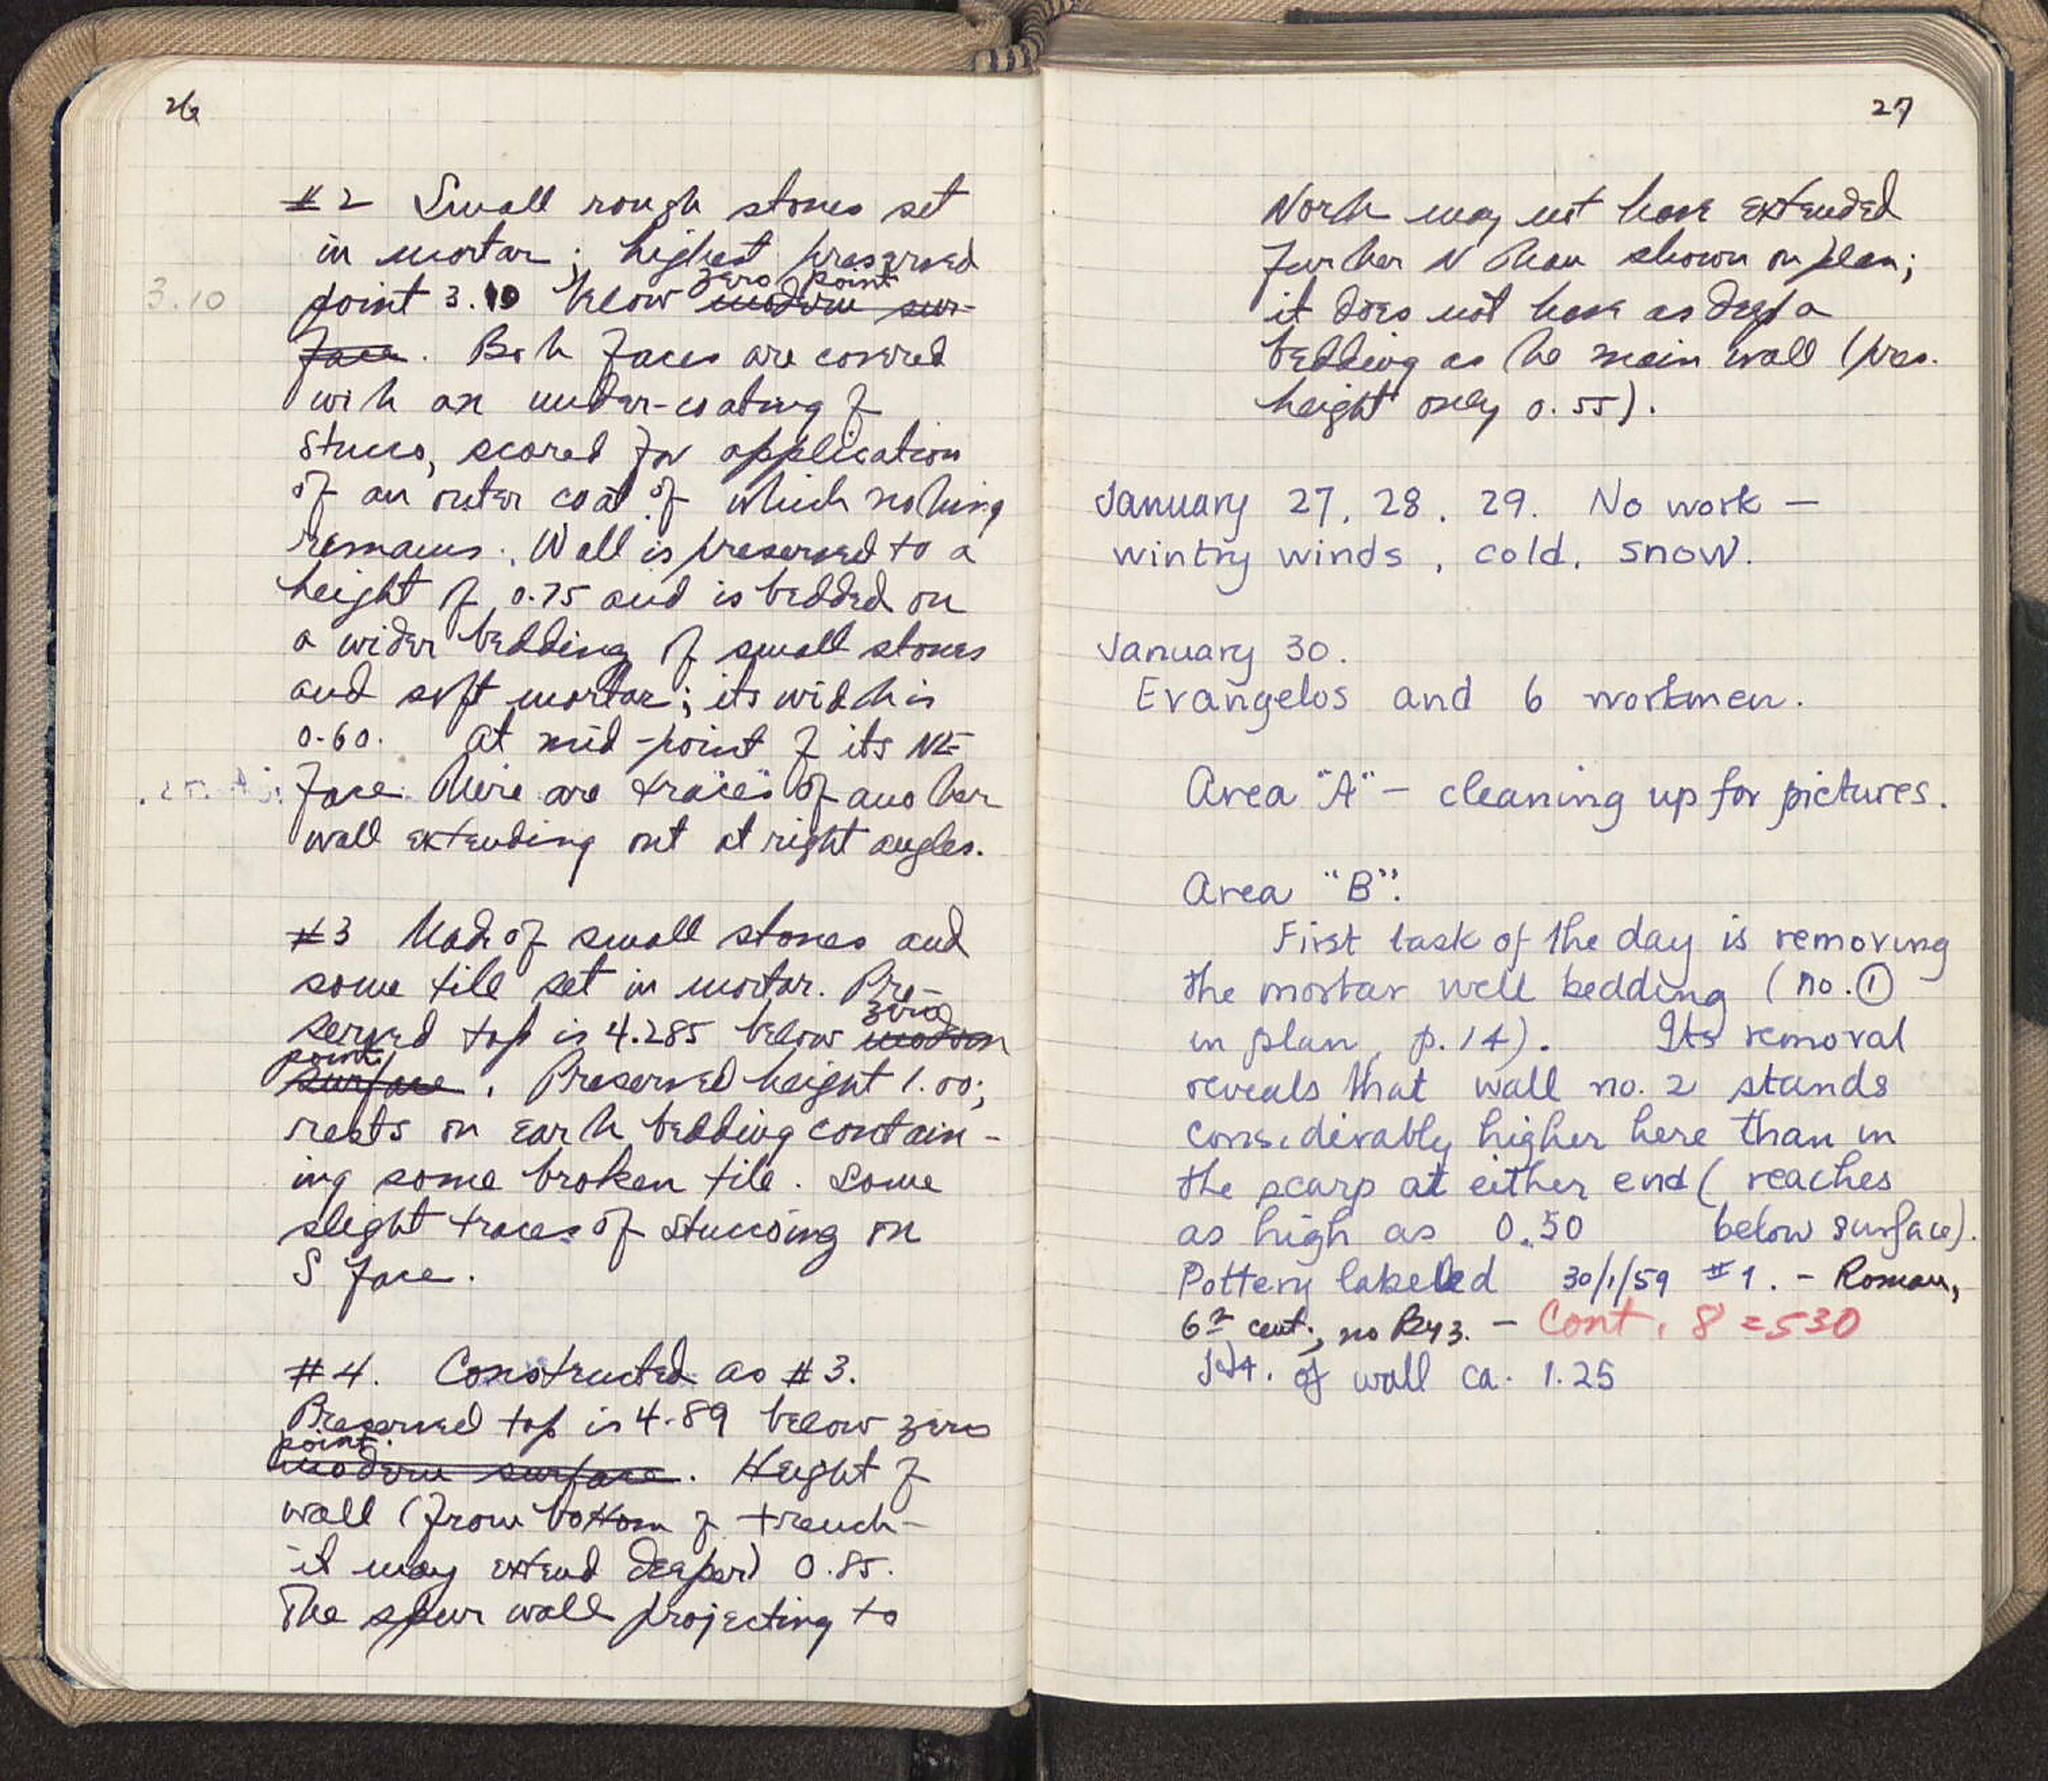 26
#2 Small rough stones set
in mortar; highest preserved
zero point
3.10
point 3.10 below modern sur-
face. Both faces are covered
with an under-coating of
stucco, scored for application
of an outer coat of which nothing
remains. Wall is preserved to a
height of 0.75 and is bedded on
a wider bedding of small stones
and soft mortar; its width is
0.60. At mid-point of its NE
face there are traces of another
wall extending out at right angles.
#3 Made of small stones and
some tile set in mortar. Pre-
zero
served top is 4.285 below modern
point
surface. Preserved height 1.00;
rests on earth bedding contain-
ing some broken tile. Some
slight traces of stuccoing on
S face.
#4. Constructed as #3.
Preserved top is 4.89 below zero
point.
modern surface. Height of
wall (from bottom of trench-
it may extend deeper) 0.85.
The spur wall projecting to
27
North may not have extended
further N than shown on plan;
it does not have as deep a
bedding as the main wall (pres.
height only 0.55).
January 27, 28, 29. No work —
wintry winds, cold, snow.
January 30.
Evangelos and 6 workmen.
Area "A" - cleaning up for pictures.
Area "B".
First task of the day is removing
the mortar well bedding (no. 1
in plan, p. 14). Its removal
reveals that wall no. 2 stands
considerably higher here than in
the scarp at either end (reaches
as high as 0.50 below surface).
Pottery labeled 30/1/59 #1. - Roman,
6th cent., no Byz. - Cont. 8 = 530
of wall ca. 1.25